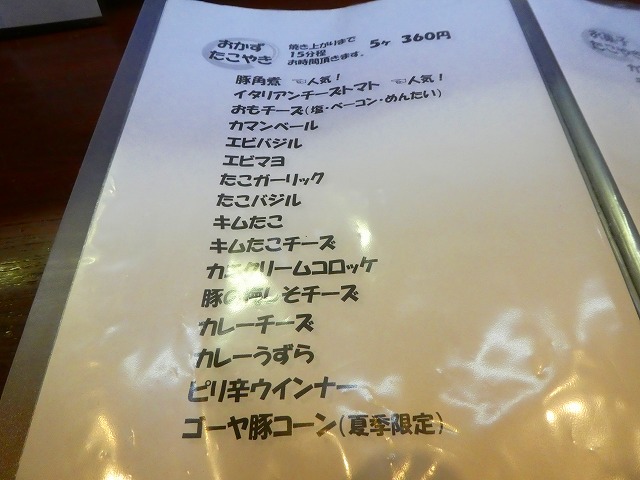 おかず
たこやき
焼き上がりまで
15分程
お時間頂きます。
5ヶ 360円
豚角煮 ☜人気！
イタリアンチーズトマト ☜人気！
おもチーズ(塩・ベーコン・めんたい)
カマンベール
エビバジル
エビマヨ
たこガーリック
たこバジル
キムたこ
キムたこチーズ
カニクリームコロッケ
豚の梅しそチーズ
カレーチーズ
カレーうずら
ピリ辛ウインナー
ゴーヤ豚コーン(夏季限定)